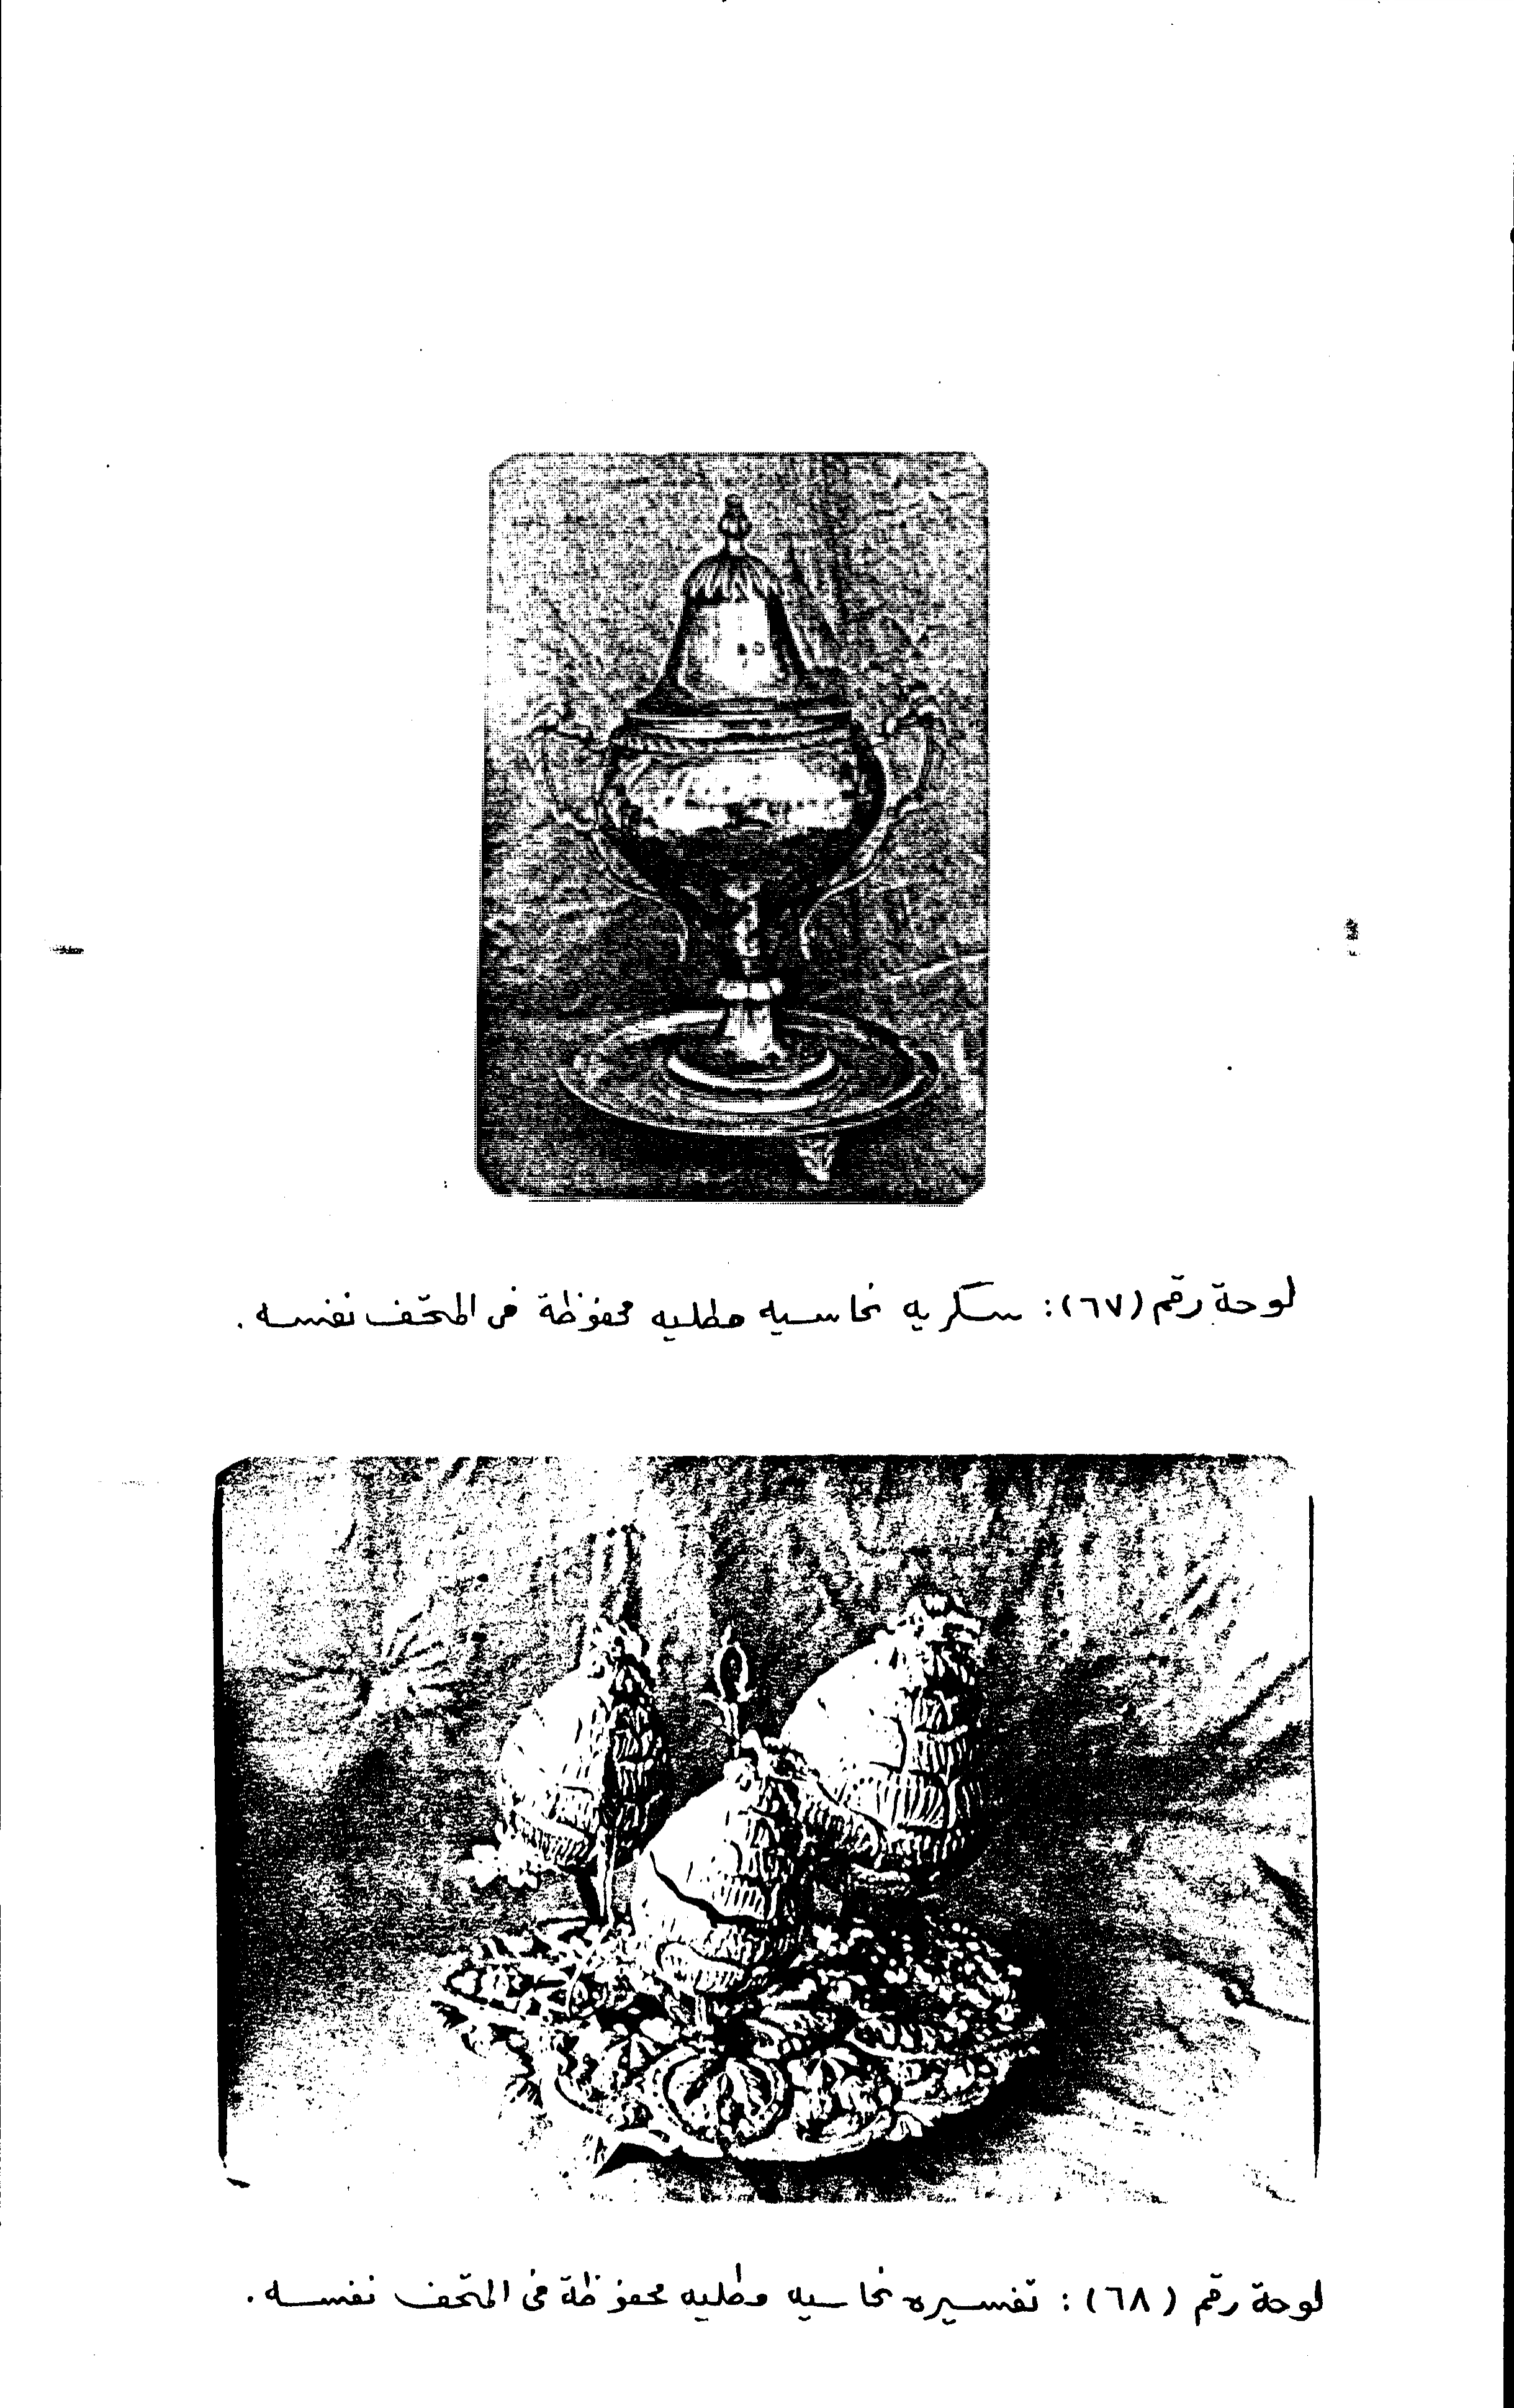 لوحة رقم (٦٧): سكريه نحاسيه مطليه محفوظة فى المتحف نفسه .
لوحة رقم (٦٨) : تفسيره نحاسيه مطليه محفوظة فى المتحف نفسه .